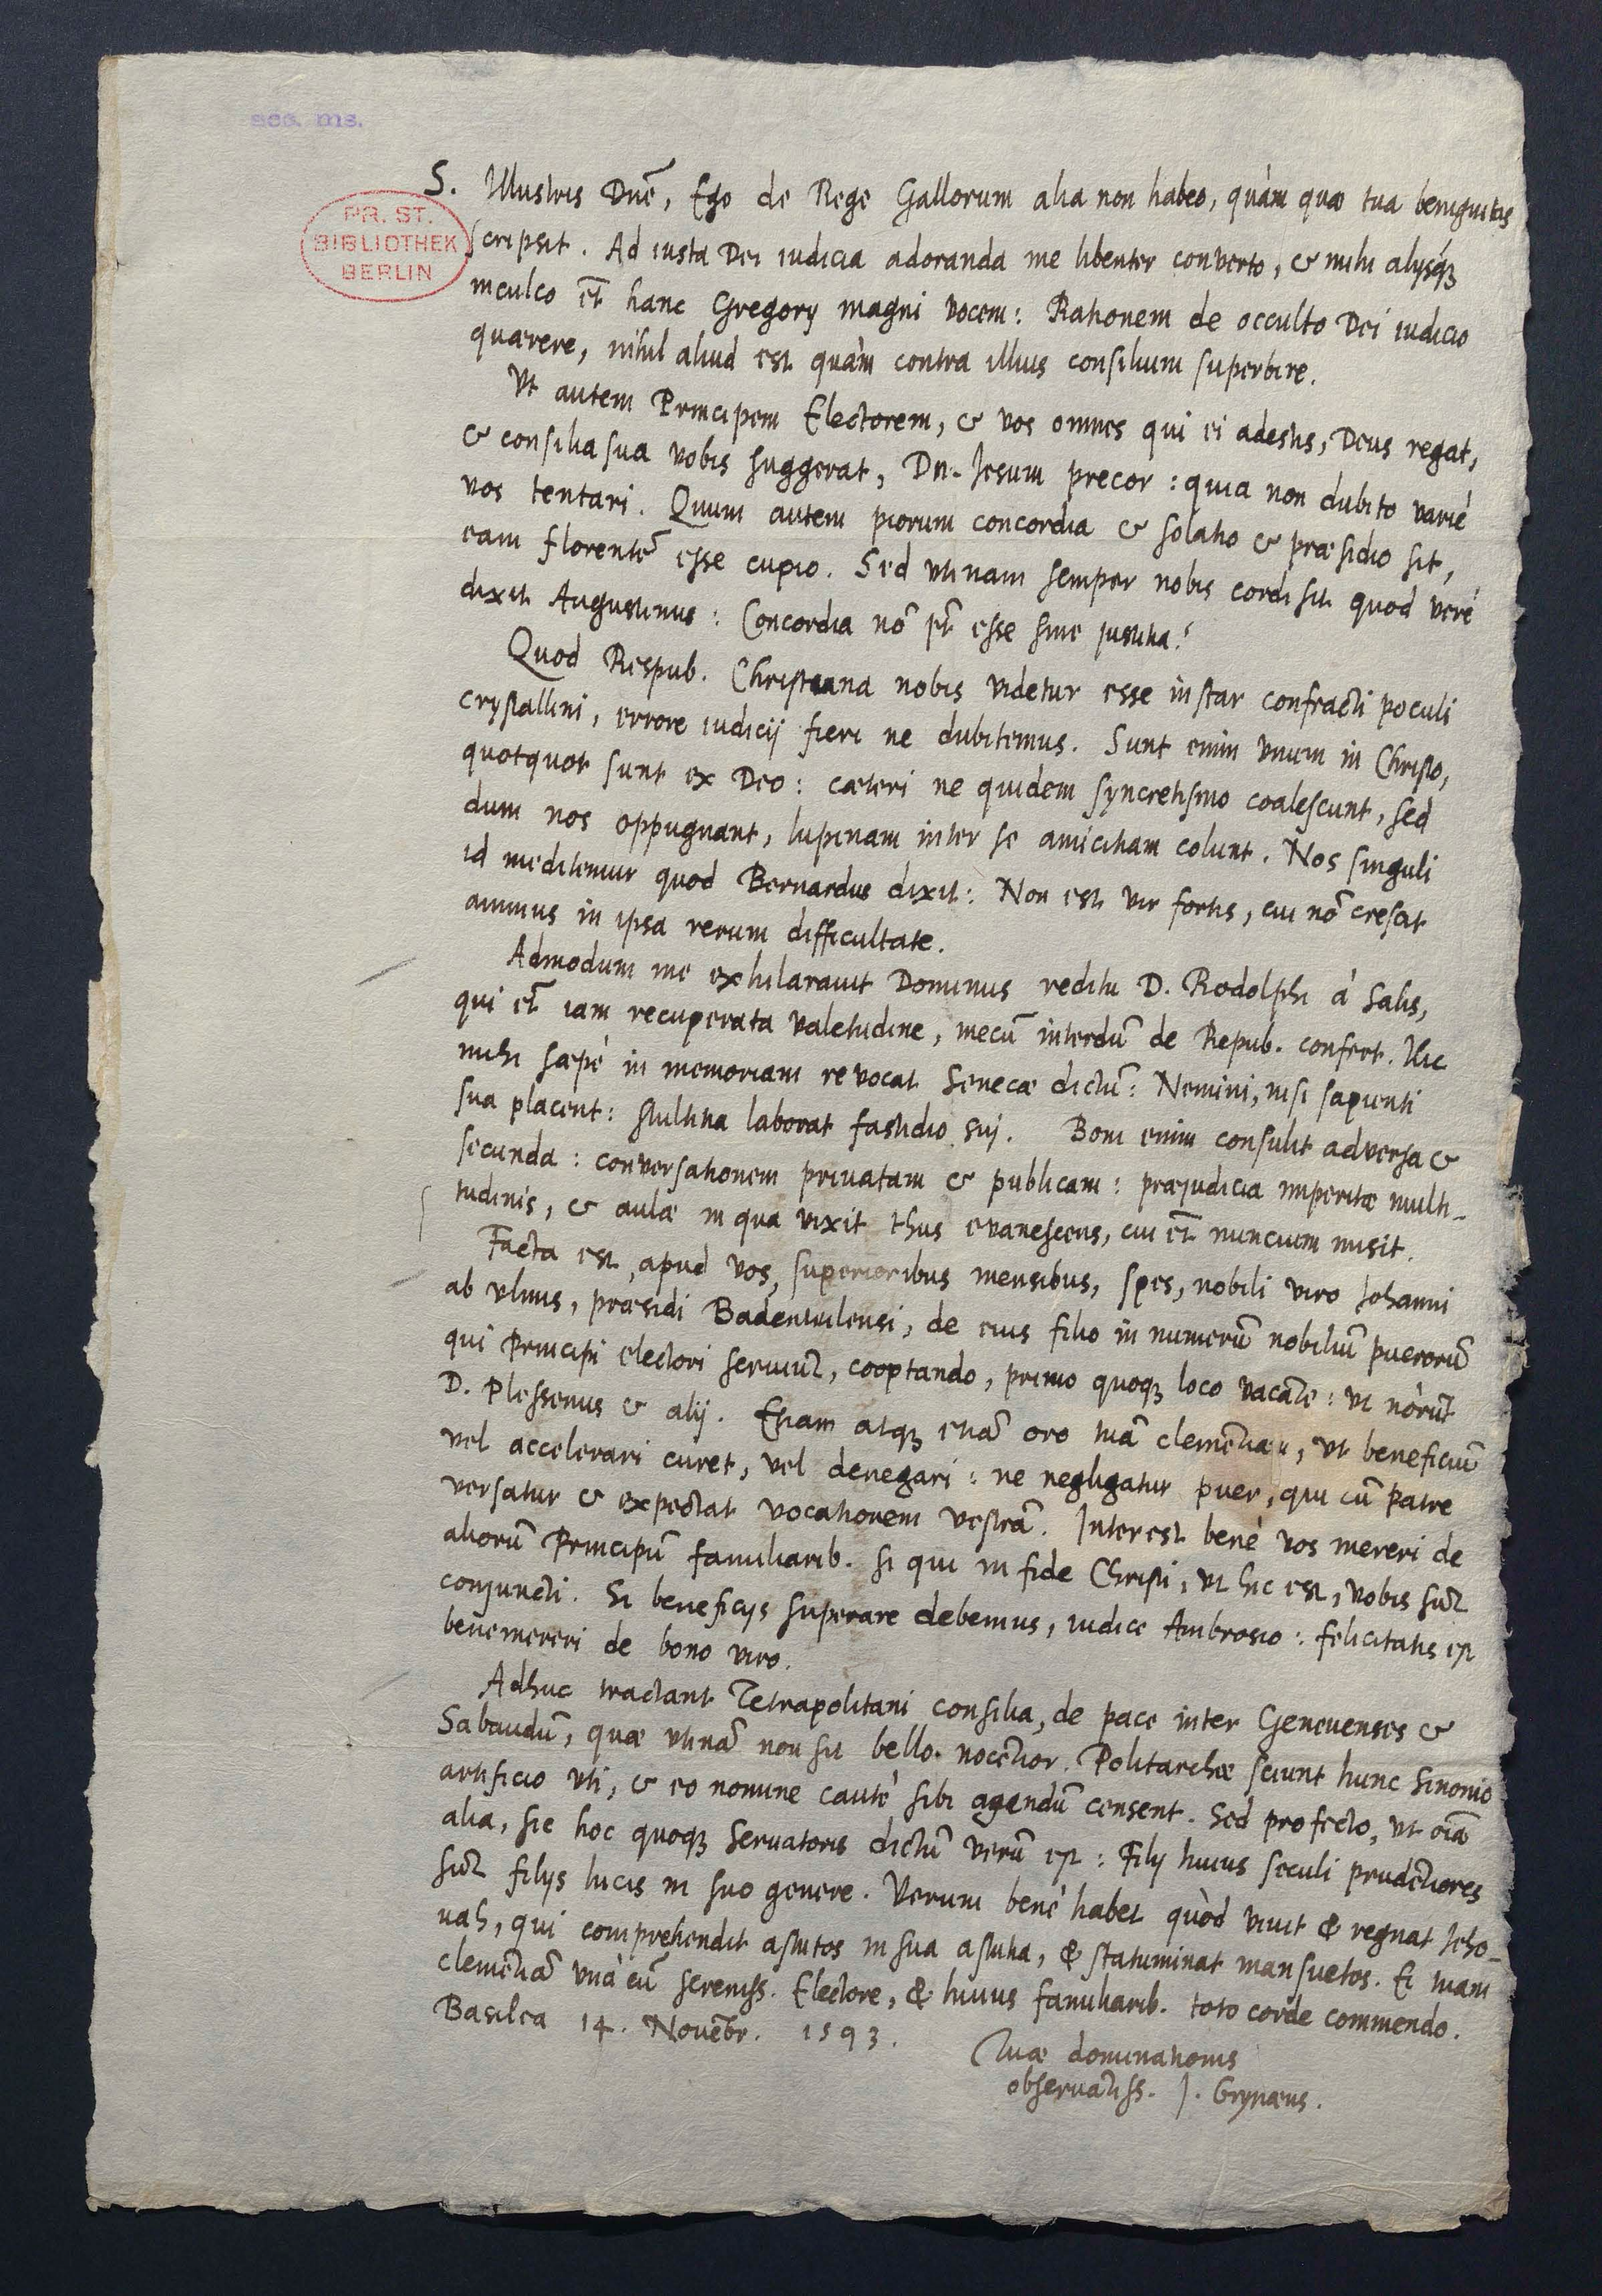 acc. ms.
PR. ST.
BIBLIOTHEK
BERLIN
S. Illustris Dnē, Ego de Rege Gallorum alia non habeo, quàm quæ tua benignitas
scripsit. Ad iusta Dei iudicia adoranda me libenter converto, & mihi alijsq́ꝫ
inculco et̃ hanc Gregorij magni vocem: Rationem de occulto Dei iudicio
quærere, nihil aliud est quàm contra illius consilium superbire.
Vt autem Principem Electorem, & vos omnes qui ei adestis, Deus regat,
& consilia sua vobis suggerat, Dn. Jesum precor: quia non dubito variè
vos tentari. Quum autem piorum concordia & solatio & præsidio sit,
eam florentē esse cupio. Sed utinam semper nobis cordi sit quod verè
dixit Augustinus: Concordia nō pt̃ esse sine justitia!
Quod Respub. Christiana nobis videtur esse instar confracti poculi
crystallini, errore iudicij fieri ne dubitemus. Sunt enim vnum in Christo,
quotquot sunt ex Deo: cæteri ne quidem syncretismo coalescunt, sed
dum nos oppugnant, lupinam inter se amicitiam colunt. Nos singuli
id meditemur quod Bernardus dixit: Non est vir fortis, cui nō crescit
animus in ipsa rerum difficultate.
Admodum me exhilarauit Dominus reditu D. Rodolphi à Salis,
qui et̃ iam recuperata valetudine, mecū interdū de Repub. confert. Hic
mihi sæpè in memoriam revocat Senecæ dictū: Nemini, nisi sapienti
sua placent: stultitia laborat fastidio sui. Boni enim consulit adversa &
secunda: conversationem priuatam & publicam: præjudicia imperitæ multi-
tudinis, & aulæ in qua vixit thus evanescens, cui et̃ nuncium misit.
Facta est, apud vos, superioribus mensibus, spes, nobili viro Johanni
ab Vlmis, præsidi Badenwilensi, de eius filio in numerū nobiliū puerorū
qui Principi electori seruiūt, cooptando, primo quoqꝫ loco vacāte: vt nôrūt
D. Plessenus & alij. Etiam atqꝫ etiā oro tuā clemētiam, vt beneficiū
vel accelerari curet, vel denegari: ne negligatur puer, qui cū patre
versatur & expectat vocationem vestrā. Interest benè vos mereri de
aliorū Principū familiarib. si qui in fide Christi, vt hic est, vobis sūt
conjuncti. Si beneficijs superare debemus, iudice Ambrosio: felicitatis est
benemereri de bono viro.
Adhuc tractant Tetrapolitani consilia, de pace inter Geneuenses &
Sabaudū, quæ vtinā non sit bello nocētior. Politarchæ sciunt hunc Sinonio
artificio vti, & eo nomine cautè sibi agendū censent. Sed profectò, vt oīa
alia, sic hoc quoqꝫ Seruatoris dictū verū est: Filij huius seculi prudētiores
sūt filijs lucis in suo genere. Verum benè habet quòd viuit & regnat Jeho-
uah, qui comprehendit astutos in sua astutia, & statuminat mansuetos. Ei tuam
clemētiā vnà cū sereniss. Electore, & huius familiarib. toto corde commendo.
Basilea 14. Novēbr. 1593.
Tuæ dominationis
obseruātiss. J. Grynæus.